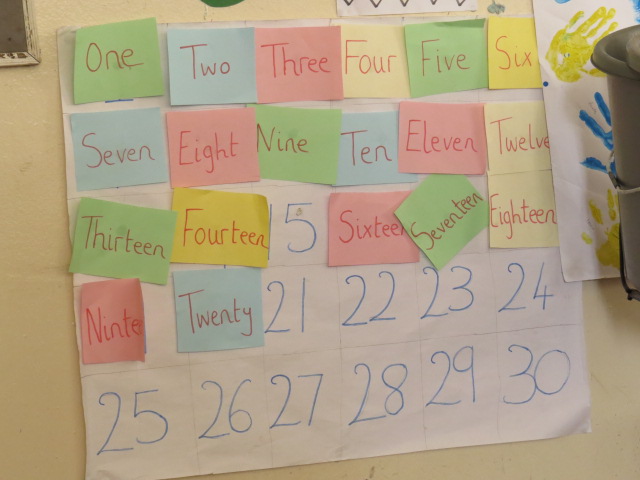 One Two Three Four Five Six
Seven Eight Nine Ten Eleven Twelve
Thirteen Fourteen 15 Sixteen Seventeen Eighteen
Ninte Twenty 21 22 23 24
25 26 27 28 29 30